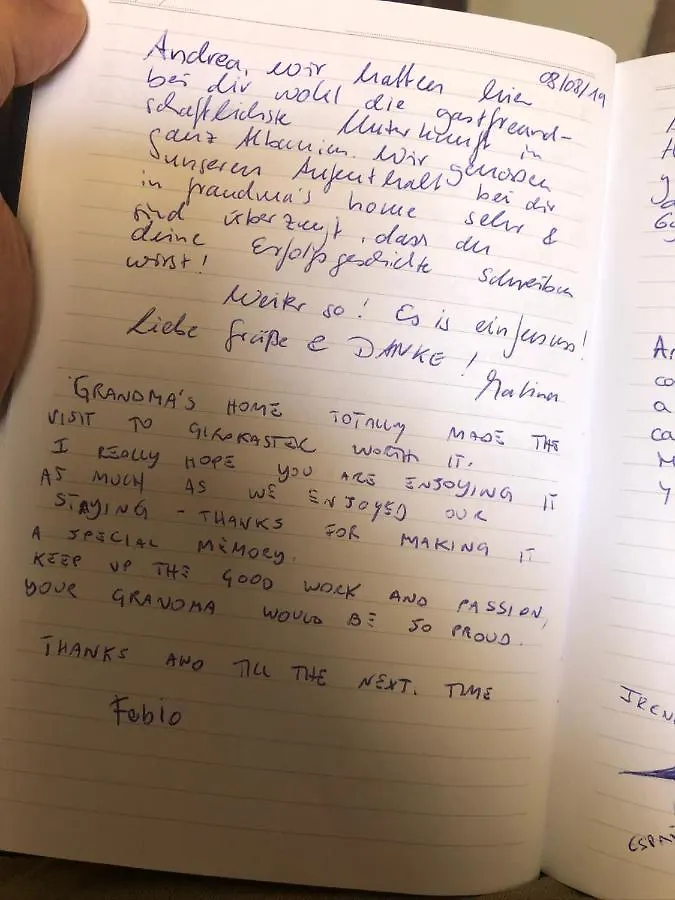 08/08/19
Andrea, wir hatten hier
bei dir wohl die gastfreund-
schaftlichste Unterkunft in
ganz Albanien. Wir genossen
unseren Aufenthalt bei dir
in grandma's home sehr &
sind überzeugt, dass du
deine Erfolgsgeschichte schreiben
wirst!
Weiter so! Es is
Liebe Grüße & DANKE!
GRANDMA'S HOME TOTALLY MADE THE
VISIT TO GIROKASTER WORTH IT.
I REALLY HOPE YOU ARE ENJOYING IT
AS MUCH AS WE ENJOYED OUR
STAYING - THANKS FOR MAKING IT
A SPECIAL MEMORY.
KEEP UP THE GOOD WORK AND PASSION,
YOUR GRANDMA WOULD BE SO PROUD.
THANKS AND TILL THE NEXT. TIME
Fabio
IREN
ESPAÑ